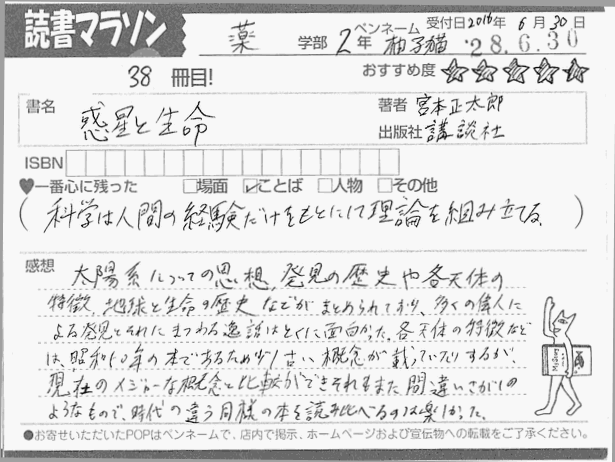 読書マラソン
薬 学部 2年 ペンネーム 柚子猫 受付日2016年 6月 30日
'28.6.30
38 冊目!
おすすめ度 ☆☆☆☆☆
書名 惑星と生命
著者 宮本正太郎
出版社 講談社
ISBN
♥一番心に残った □場面 ☑ことば □人物 □その他
(科学は人間の経験だけをもとにして理論を組み立てる。)
感想 太陽系についての思想、発見の歴史や各天体の
特徴、地球と生命の歴史などがまとめられており、多くの偉人に
よる発見とそれにまつわる逸話はとくに面白かった。各天体の特徴など
は、昭和50年の本であるため少し古い概念が載っていたりするが、
現在のメジャーな概念と比較ができそれもまた間違いさがしの
ようなもので、時代の違う同様の本を読み比べるのは楽しかった。
●お寄せいただいたPOPはペンネームで、店内で掲示、ホームページおよび宣伝物への転載をご了承ください。